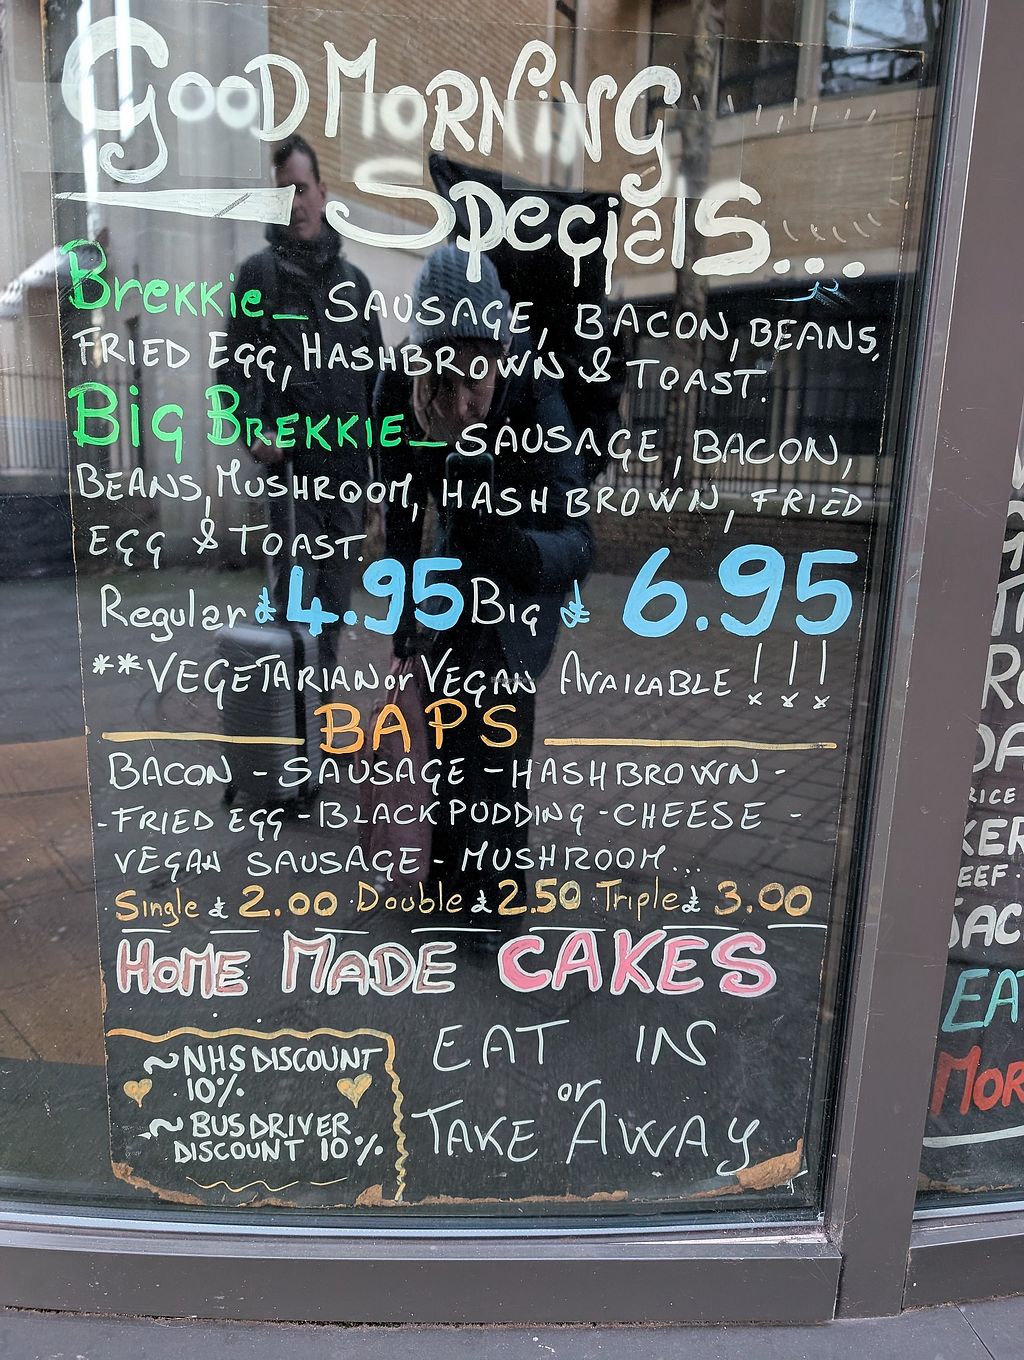 Good Morning
Specials...
Brekkie_ SAUSAGE, BACON, BEANS,
FRIED EGG, HASHBROWN & TOAST.
Big BREKKIE_ SAUSAGE, BACON,
BEANS, MUSHROOM, HASH BROWN, FRIED
EGG & TOAST.
Regular £4.95 Big £ 6.95
**VEGETARIAN or VEGAN AVAILABLE !!!
BAPS
BACON - SAUSAGE - HASHBROWN -
-FRIED EGG - BLACK PUDDING - CHEESE -
VEGAN SAUSAGE - MUSHROOM...
Single £ 2.00 · Double £ 2.50 · Triple £ 3.00
HOME MADE CAKES
~NHS DISCOUNT
10%.
~ BUS DRIVER
DISCOUNT 10%.
EAT IN
or
TAKE AWAY
RICE
KER
EEF
EAT
MOR